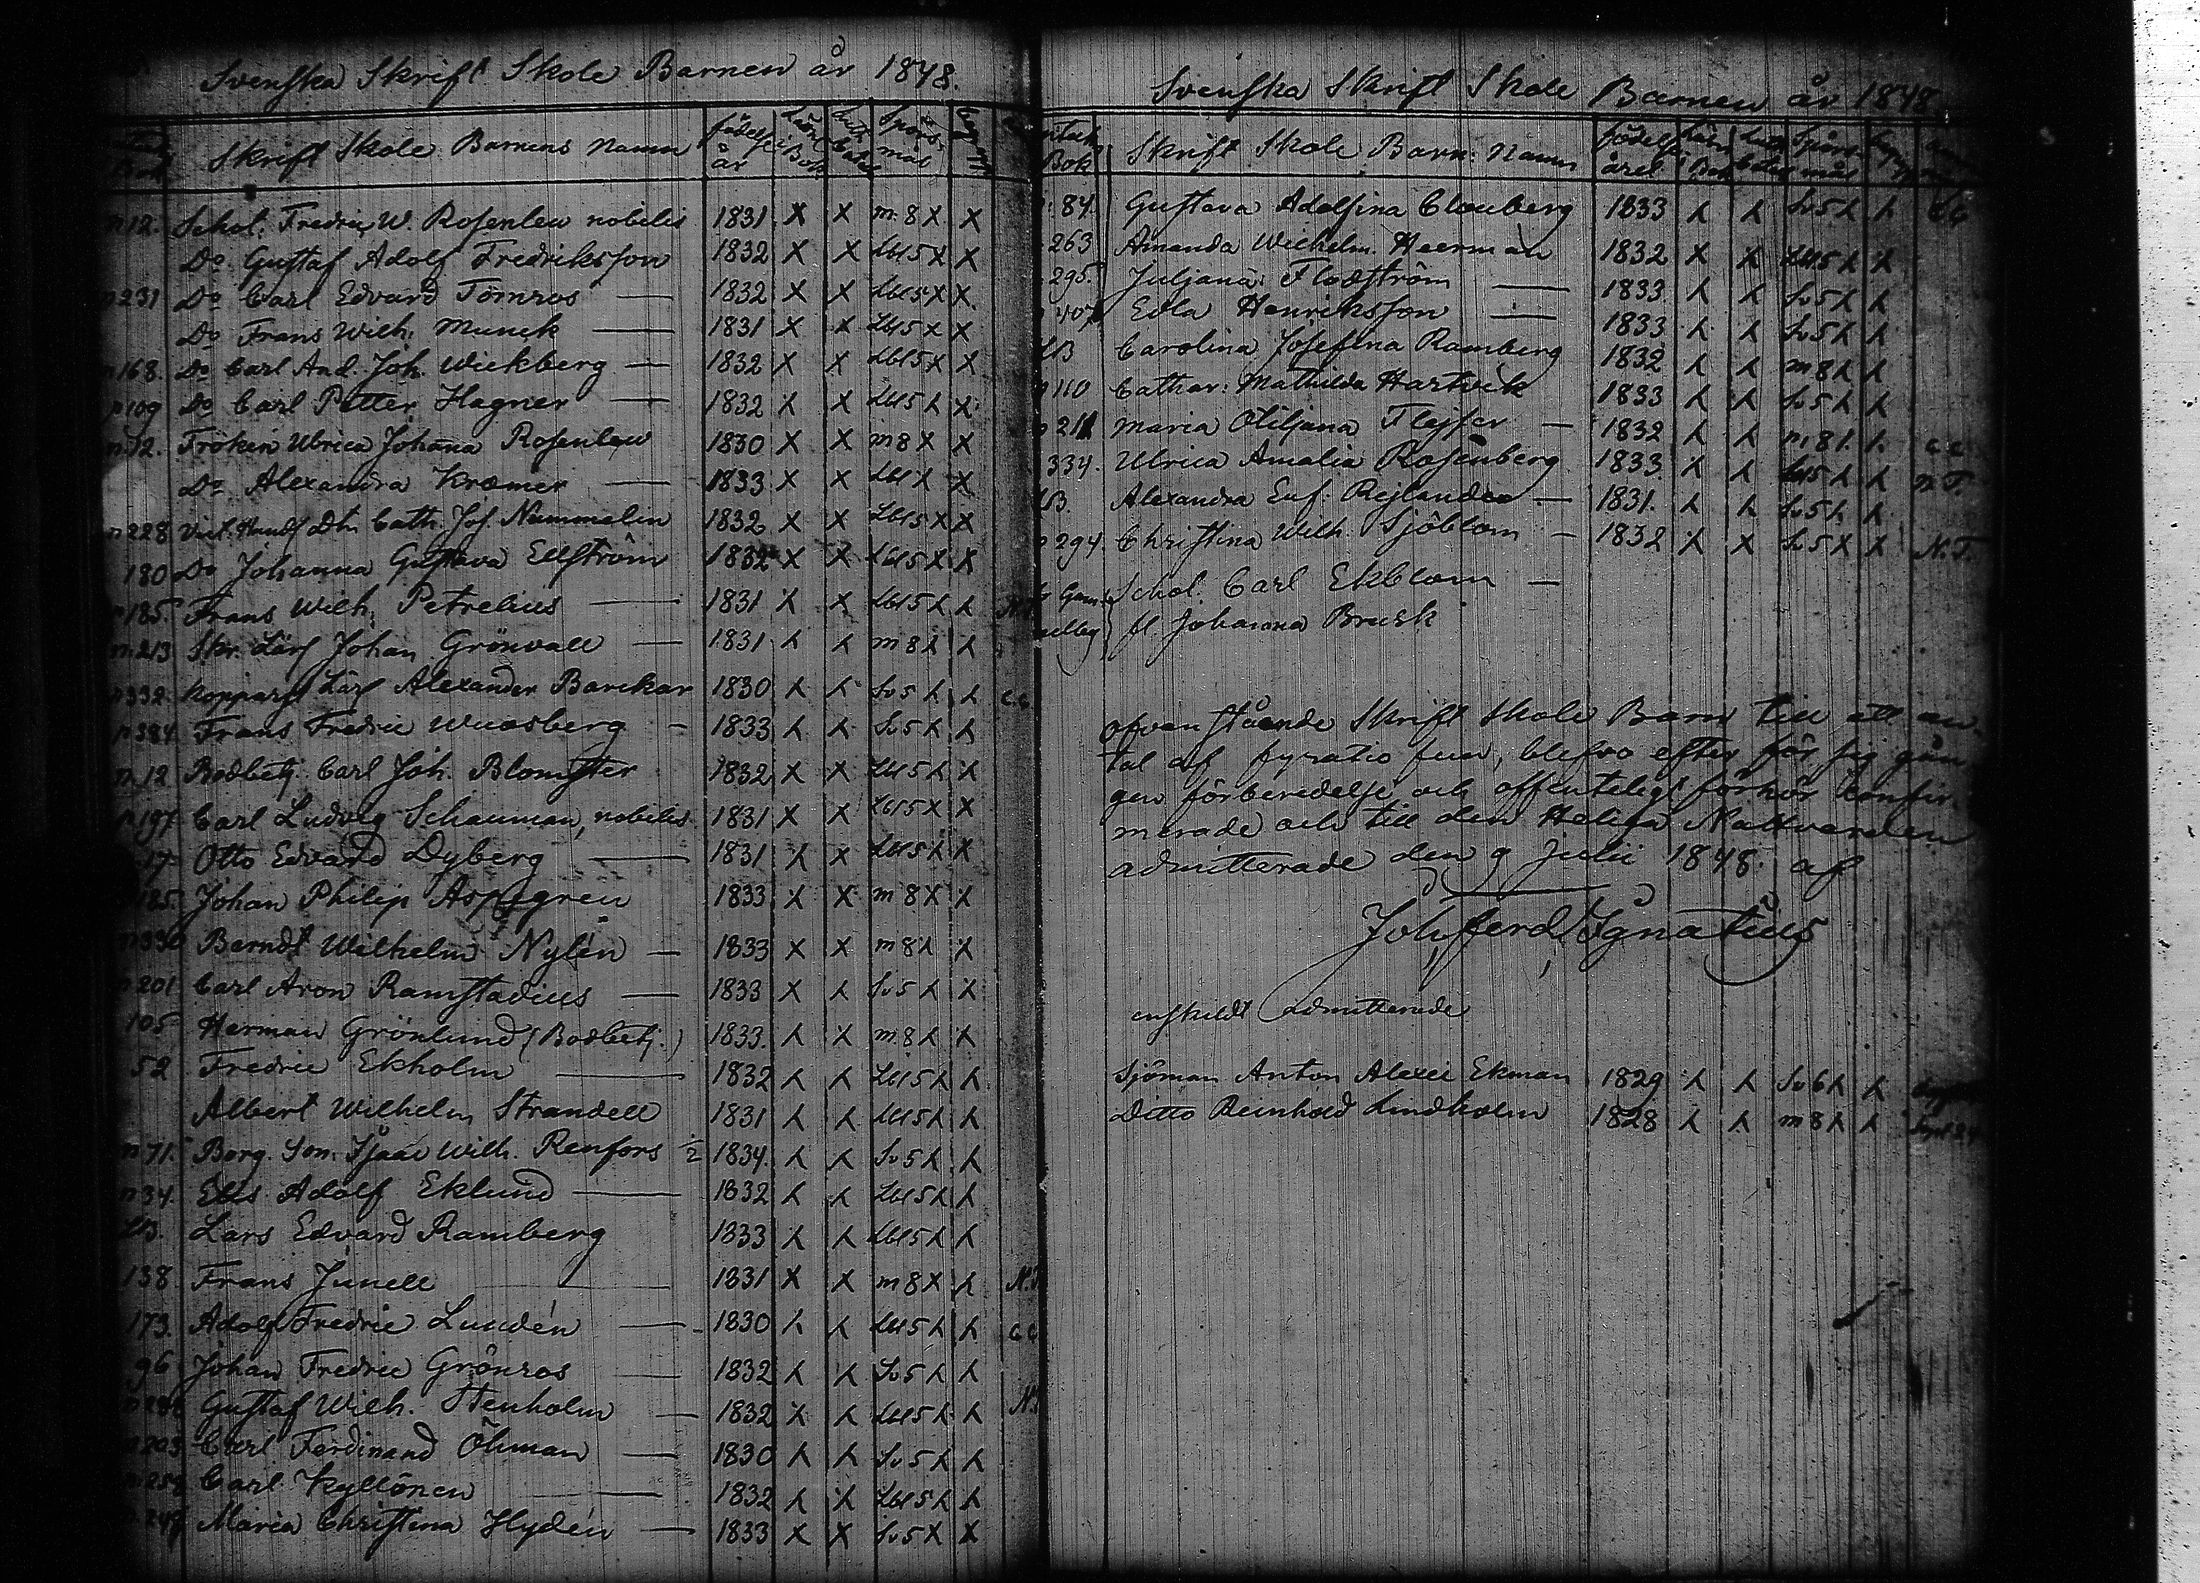 Svenska Skrift Skole Barnen år 1848.
Skrift Skole Barnens Namn födelse år Sporsmål
n 12. Schol. Fredric W. Rosenlew nobilis 1831 X X m 8 X X
Do Gustaf Adolf Fredriksson 1832 X X Lbl 5 X X
n 231 Do Carl Edvard Törnros — 1832 X X Lbl 5 X X
Do Frans Wilh. Munck — 1831 X X Lbl 5 X X
n 168. Do Carl And. Joh. Wickberg — 1832 X X Lbl 5 X X
n 109 Do Carl Petter Hagner — 1832 X X Lbl 5 X X
n 12. Fröken Ulrica Johanna Rosenlew 1830 X X m 8 X X
Do Alexandra Kræmer — 1833 X X Lbl X X
n 228 Dtr Cath. Jos. Nummelin 1832 X X Lbl 5 X X
180 Do Johanna Gustava Ellström 1832 X X Lbl 5 X X
n 185. Frans Wilh. Petrelius — 1831 X X Lbl 5 X X
n 213 Skr. Lärl Johan Grönvall — 1831 X X m 8 X X
n 332 Kopparsl Lärl Alexander Barckar 1830 X X Sv 5 X X c c
n 384 Frans Fredric Wuosberg — 1833 X X Sv 5 X X
n 12 Bodbetj. Carl Joh. Blomster 1832 X X Lbl 5 X X
n 197 Carl Ludvig Schauman, nobilis 1831 X X Lbl 5 X X
17 Otto Edvard Dyberg — 1831 X X Lbl 5 X X
185. Johan Philip Aspegren 1833 X X m 8 X X
n 330 Berndt Wilhelm Nylén — 1833 X X m 8 X X
n 201 Carl Aron Ramstadius — 1833 X X Sv 5 X X
105 Herman Grönlund (Bodbetj.) 1833. X X m 8 X X
52 Fredric Ekholm — 1832 X X Lbl 5 X X
Albert Wilhelm Strandell 1831 X X Lbl 5 X X
n 71. Borg. Son. Isaac Wilh. Renfors 1/2 1834. X X Sv 5 X X
n 34. Elis Adolf Eklund — 1832 X X Lbl 5 X X
Lars Edvard Ramberg 1833 X X Lbl 5 X X
138. Frans Junell — 1831 X X m 8 X X N.T
173. Adolf Fredric Lundén — 1830 X X Lbl 5 X X c c
96 Johan Fredric Grönros — 1832 X X Sv 5 X X
Gustaf Wilh. Stenholm — 1832 X X Lbl 5 X X
n 203 Carl Ferdinand Öhman — 1830 X X Sv 5 X X
n 252 Carl Kyllönen — 1832 X X Lbl 5 X X
Maria Christina Hydén — 1833 X X Sv 5 X X
Svenska Skrift Skole Barnen år 1848
Bok Skrift Skole Barn: Namn födelse året
84. Gustava Adolfina Clouberg 1833 X X Sv 5 X X c c
263 Amanda Wilhelm. Heerman 1832 X X Lbl 5 X X
295. Juljana Flodström — 1833 X X Sv 5 X X
407 Edla Henriksson — 1833 X X Sv 5 X X
Carolina Josefina Ramberg 1832 X X m 8 X X
n 110 Cathar: Mathilda Hartvik 1833 X X Sv 5 X X
n 211 Maria Otiljana Flejser — 1832 X X m 8 X X c c
334. Ulrica Amalia Rosenberg 1833 X X Lbl 5 X X N.T.
Alexandra Euf. Rejlander — 1831. X X Sv 5 X X
n 294. Christina Wilh. Sjöblom — 1832 X X Sv 5 X X N.T.
Schol. Carl Ekblom —
fl. Johanna Brusk
ofvanstående Skrift Skole Barn till ett an-
tal af fyratio fem, blefvo efter för sig gån-
gen förberedelse och offenteligt förhör confir-
merade och till den Heliga Nattvarden
admitterade den 9 Julii 1848. af
Joh. Ferd. Ignatius
enskildt admitterade
Sjöman Anton Alexei Ekman 1829 X X Sv 6 X X
Ditto Reinhold Lindholm 1828 X X m 8 X X